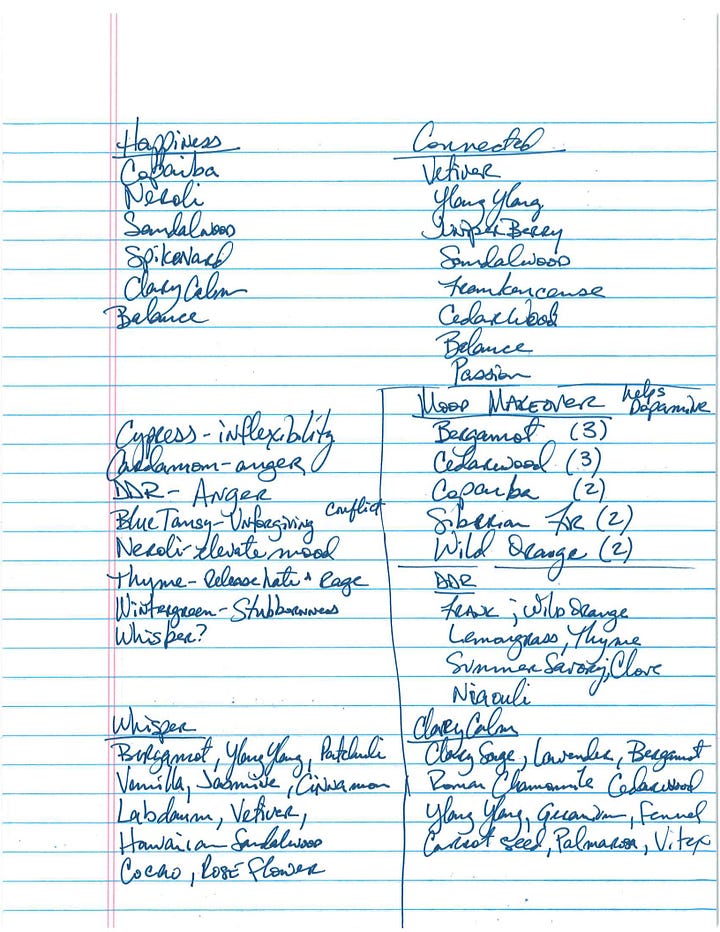 Happiness
Copaiba
Neroli
Sandalwood
Spikenard
Clary Calm
Balance
Connected
Vetiver
Ylang Ylang
Juniper Berry
Sandalwood
Frankencense
Cedar Wood
Balance
Passion
Cypress - inflexibility
Cardamom - anger
DDR - Anger
Blue Tansy - Unforgiving conflict
Neroli - elevate mood
Thyme - Release hate + Rage
Wintergreen - Stubbornness
Whisper?
Mood Makeover helps Dopamine
Bergamot (3)
Cedarwood (3)
Copaiba (2)
Siberian Fir (2)
Wild Orange (2)
DDR
Frank ; Wild Orange
Lemongrass, Thyme
Summer Savory, Clove
Niaouli
Whisper
Bergamot, Ylang Ylang, Patchuli
Vanilla, Jasmine, Cinnamon
Labdanum, Vetiver,
Hawaiian Sandalwood
Cocao, Rose Flower
Clary Calm
Clary Sage, Lavender, Bergamot
Roman Chamomile Cedarwood
Ylang Ylang, Geranium, Fennel
Carrot Seed, Palmarosa, Vitex